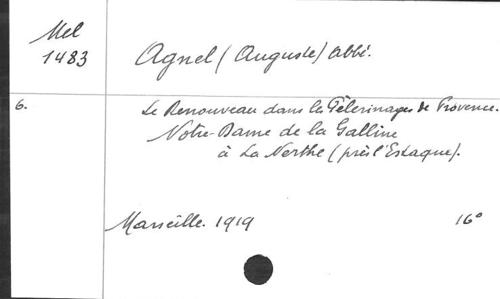 Mel
1483
Agnel (Auguste) abbé.
6.
Le Renouveau dans les Pèlerinages de Provence.
Notre-Dame de la Galline
à La Nerthe (près l'Estaque).
Marseille. 1919
16°